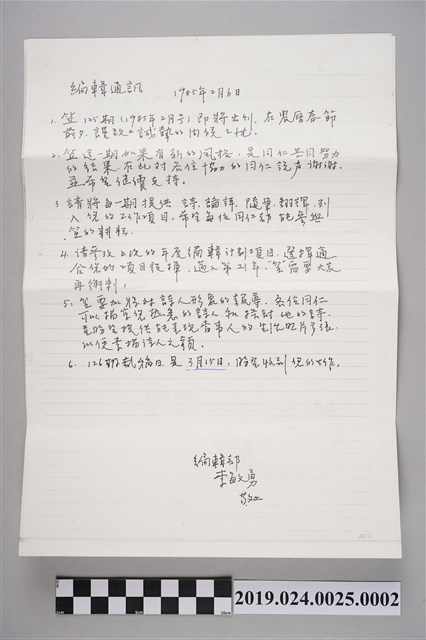 編輯通訊 1985年2月6日
1. 笠125期(1985年2月号)即將出刊,在農曆春節
前夕,謹致以誠懇的問候之忱。
2. 笠這一期如果有新的風格,是同仁共同努力
的結果,在此對各位協力的同仁說声謝謝。
並希望繼續支持。
3. 請將每一期提供 詩、論評、隨筆、翻譯,列
入您的工作項目,希望每位同仁都能參與
笠的耕耘。
4. 請參攷上次的年度編輯計劃項目,選擇適
合您的項目發揮,邁入第21年,笠需要大家
再衝刺!
5. 笠要加強對詩人形象的報導,各位同仁
可以描寫您熟悉的詩人和探討他的詩,
並盼望提供能表現當事人的生活照片多張,
以便表揚詩人之顏。
6. 126期截稿日是3月15日,盼望收到您的大作。
編輯部
李敏勇
敬上
2019.024.0025.0002